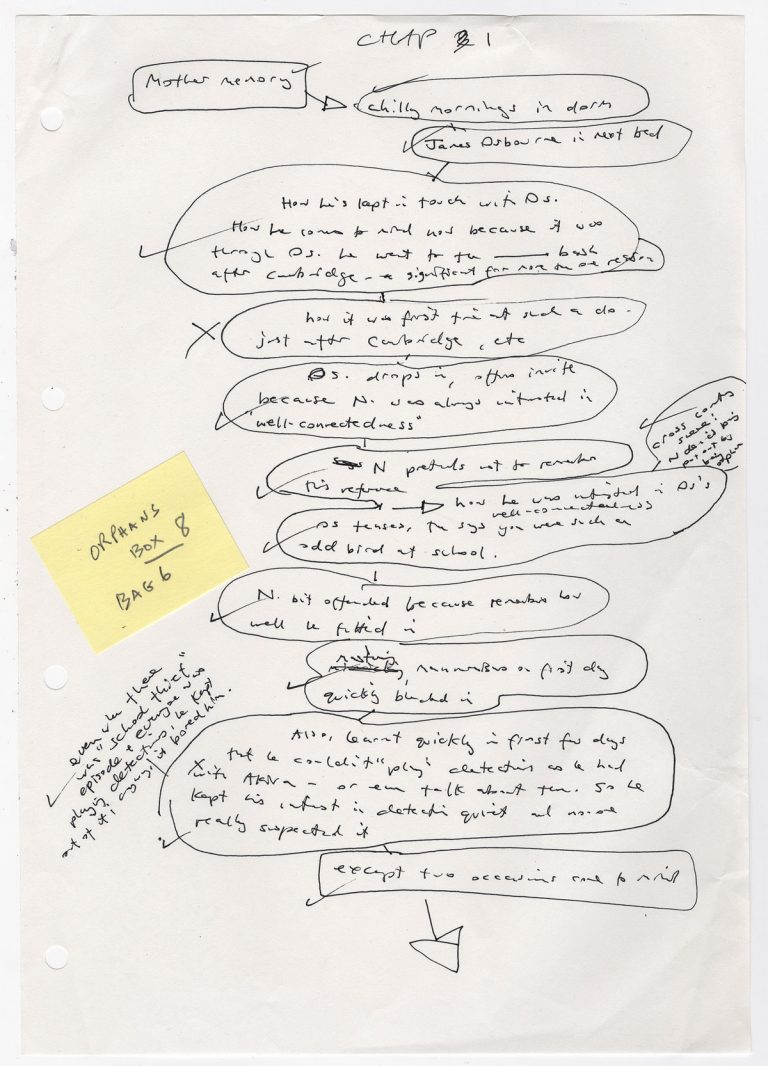 CHAP 1
Mother memory
chilly mornings in dorm
James Osbourne in next bed
How he's kept in touch with Os.
How he comes to mind now because it was
through Os. he went to the —— bash
after Cambridge – a significant for more than one reason
how it was first time at such a do -
just after Cambridge, etc
Os. drops in, offers invite
because N. was always interested in
"well-connectedness"
N pretends not to remember
this reference
how he was interested in Os's
well-connectedness
Os tenses, then says you were such an
odd bird at school.
cross cuts
scene:
N denied being
put out by
being
orphan
ORPHANS
BOX 8
BAG 6
N. bit offended because remembers how
well he fitted in
mannerisms on first day
quickly blended in
even when there
was "school thief"
episode & everyone was
playing detectives, he kept
out of it; anyway it bored him.
Also, learnt quickly in first few days
that he couldn't "play" detectives as he had
with Akira – or even talk about them. So he
kept his interest in detectives quiet and no one
really suspected it
except two occasions come to mind